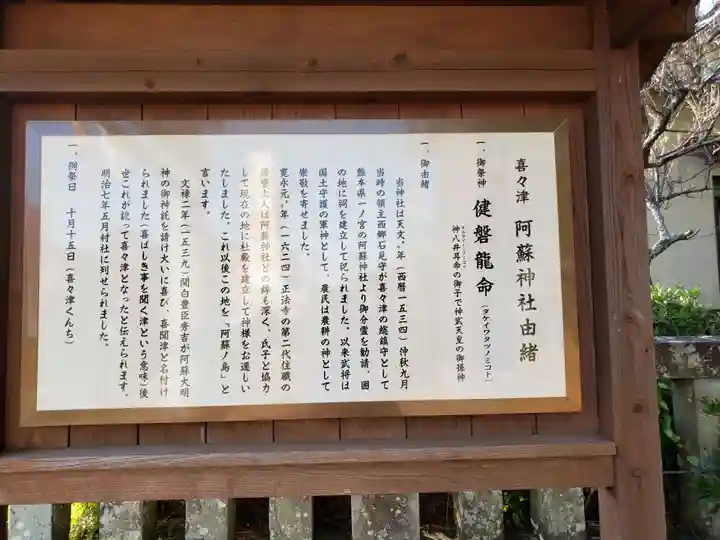 喜々津 阿蘇神社由緒
一、御祭神 健磐龍命(タケイワタツノミコト)
神八井耳命の御子で神武天皇の御孫神
一、御由緒
当神社は天文三年(西暦一五三四)仲秋九月
当時の領主西郷石見守が喜々津の総鎮守として
熊本県一ノ宮の阿蘇神社より御分霊を勧請、囲
の地に祠を建立して祀られました。以来武将は
国土守護の軍神として、農民は農耕の神として
崇敬を寄せました。
寛永元年(一六二四)正法寺の第二代住職の
上人は阿蘇神社との縁も深く、氏子と協力
して現在の地に社殿を建立して神様をお遷しい
たしました。これ以後この地を「阿蘇ノ島」と
言います。
文禄二年(一五三九)関白豊臣秀吉が阿蘇大明
神の御神託を請け大いに喜び、喜聞津と名付け
られました(喜ばしき事を聞く津という意味)後
世これが訛って喜々津となったと伝えられます。
明治七年五月村社に列せられました。
一、例祭日 十月十五日(喜々津くんち)